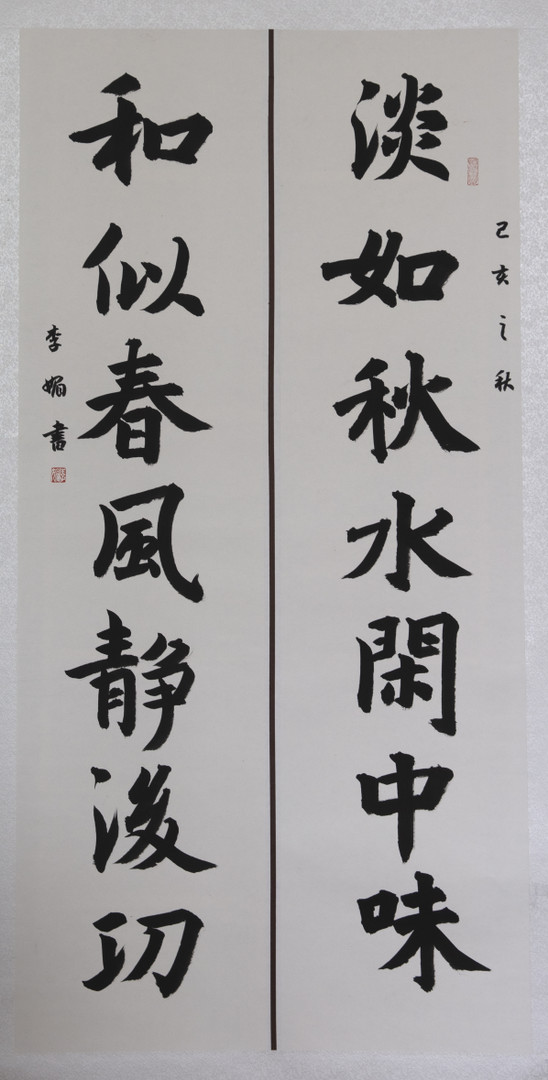 己亥之秋
淡如秋水閑中味
和似春風静後功
李媚書